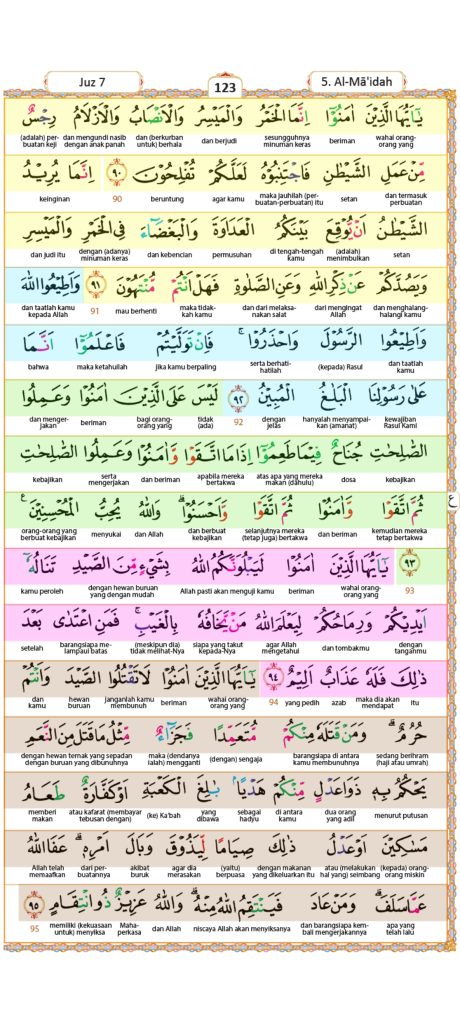 Juz 7
123
5. Al-Mā'idah
يٰٓاَيُّهَا الَّذِيْنَ اٰمَنُوْٓا اِنَّمَا الْخَمْرُ وَالْمَيْسِرُ وَالْاَنْصَابُ وَالْاَزْلَامُ رِجْسٌ
wahai orang-orang yang beriman sesungguhnya minuman keras dan berjudi dan (berkurban untuk) berhala dan mengundi nasib dengan anak panah (adalah) perbuatan keji
مِّنْ عَمَلِ الشَّيْطٰنِ فَاجْتَنِبُوْهُ لَعَلَّكُمْ تُفْلِحُوْنَ ٩٠ اِنَّمَا يُرِيْدُ
dan termasuk perbuatan setan maka jauhilah (perbuatan-perbuatan) itu agar kamu beruntung 90 keinginan
الشَّيْطٰنُ اَنْ يُّوْقِعَ بَيْنَكُمُ الْعَدَاوَةَ وَالْبَغْضَاۤءَ فِى الْخَمْرِ وَالْمَيْسِرِ
setan (adalah) menimbulkan di tengah-tengah kamu permusuhan dan kebencian dengan (adanya) minuman keras dan judi itu
وَيَصُدَّكُمْ عَنْ ذِكْرِ اللّٰهِ وَعَنِ الصَّلٰوةِ فَهَلْ اَنْتُمْ مُّنْتَهُوْنَ ٩١ وَاَطِيْعُوا اللّٰهَ
dan menghalang-halangi kamu dari mengingat Allah dan dari melaksanakan salat maka tidakkah kamu mau berhenti 91 dan taatlah kamu kepada Allah
وَاَطِيْعُوا الرَّسُوْلَ وَاحْذَرُوْا ۚ فَاِنْ تَوَلَّيْتُمْ فَاعْلَمُوْٓا اَنَّمَا
dan taatlah kamu (kepada) Rasul serta berhati-hatilah jika kamu berpaling maka ketahuilah bahwa
عَلٰى رَسُوْلِنَا الْبَلٰغُ الْمُبِيْنُ ٩٢ لَيْسَ عَلَى الَّذِيْنَ اٰمَنُوْا وَعَمِلُوا
kewajiban Rasul Kami hanyalah menyampaikan (amanat) dengan jelas 92 tidak (ada) bagi orang-orang yang beriman dan mengerjakan
الصّٰلِحٰتِ جُنَاحٌ فِيْمَا طَعِمُوْٓا اِذَا مَا اتَّقَوْا وَّاٰمَنُوْا وَعَمِلُوا الصّٰلِحٰتِ
kebajikan dosa atas apa yang mereka makan (dahulu) apabila mereka bertakwa dan beriman serta mengerjakan kebajikan
ثُمَّ اتَّقَوْا وَّاٰمَنُوْا ثُمَّ اتَّقَوْا وَّاَحْسَنُوْا ۗوَاللّٰهُ يُحِبُّ الْمُحْسِنِيْنَ ࣖ
kemudian mereka tetap bertakwa dan beriman selanjutnya mereka (tetap juga) bertakwa dan berbuat kebajikan dan Allah menyukai orang-orang yang berbuat kebajikan
ع
٩٣ يٰٓاَيُّهَا الَّذِيْنَ اٰمَنُوْا لَيَبْلُوَنَّكُمُ اللّٰهُ بِشَيْءٍ مِّنَ الصَّيْدِ تَنَالُهٗٓ
93 wahai orang-orang yang beriman Allah pasti akan menguji kamu dengan hewan buruan yang dengan mudah kamu peroleh
اَيْدِيْكُمْ وَرِمَاحُكُمْ لِيَعْلَمَ اللّٰهُ مَنْ يَّخَافُهٗ بِالْغَيْبِۚ فَمَنِ اعْتَدٰى بَعْدَ
dengan tanganmu dan tombakmu agar Allah mengetahui siapa yang takut kepada-Nya (meskipun dia) tidak melihat-Nya barangsiapa melampaui batas setelah
ذٰلِكَ فَلَهٗ عَذَابٌ اَلِيْمٌ ٩٤ يٰٓاَيُّهَا الَّذِيْنَ اٰمَنُوْا لَا تَقْتُلُوا الصَّيْدَ وَاَنْتُمْ
itu maka dia akan mendapat azab yang pedih 94 wahai orang-orang yang beriman janganlah kamu membunuh hewan buruan dan kamu
حُرُمٌ ۗوَمَنْ قَتَلَهٗ مِنْكُمْ مُّتَعَمِّدًا فَجَزَاۤءٌ مِّثْلُ مَا قَتَلَ مِنَ النَّعَمِ
sedang berihram (haji atau umrah) barangsiapa di antara kamu membunuhnya (dengan) sengaja maka (dendanya ialah) mengganti dengan hewan ternak yang sepadan dengan buruan yang dibunuhnya
يَحْكُمُ بِهٖ ذَوَا عَدْلٍ مِّنْكُمْ هَدْيًاۢ بٰلِغَ الْكَعْبَةِ اَوْ كَفَّارَةٌ طَعَامُ
menurut putusan dua orang yang adil di antara kamu sebagai hadyu yang dibawa (ke) Ka'bah atau kafarat (membayar tebusan dengan) memberi makan
مَسٰكِيْنَ اَوْ عَدْلُ ذٰلِكَ صِيَامًا لِّيَذُوْقَ وَبَالَ اَمْرِهٖ ۗعَفَا اللّٰهُ
(kepada) orang-orang miskin atau (melakukan hal yang) seimbang dengan makanan yang dikeluarkan itu (yaitu) berpuasa agar dia merasakan akibat buruk dari perbuatannya Allah telah memaafkan
عَمَّا سَلَفَ ۗوَمَنْ عَادَ فَيَنْتَقِمُ اللّٰهُ مِنْهُ ۗوَاللّٰهُ عَزِيْزٌ ذُو انْتِقَامٍ ٩٥
apa yang telah lalu dan barangsiapa kembali mengerjakannya niscaya Allah akan menyiksanya dan Allah Mahaperkasa memiliki (kekuasaan untuk) menyiksa 95